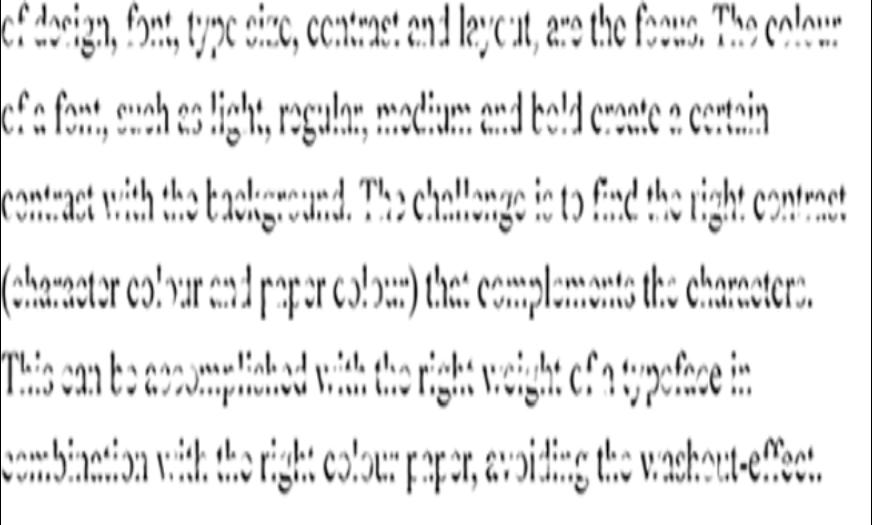 of design, font, type size, contrast and layout, are the focus. The colour
of a font, such as light, regular, medium and bold create a certain
contrast with the background. The challenge is to find the right contrast
(character colour and paper colour) that complements the characters.
This can be accomplished with the right weight of a typeface in
combination with the right colour paper, avoiding the washout-effect.